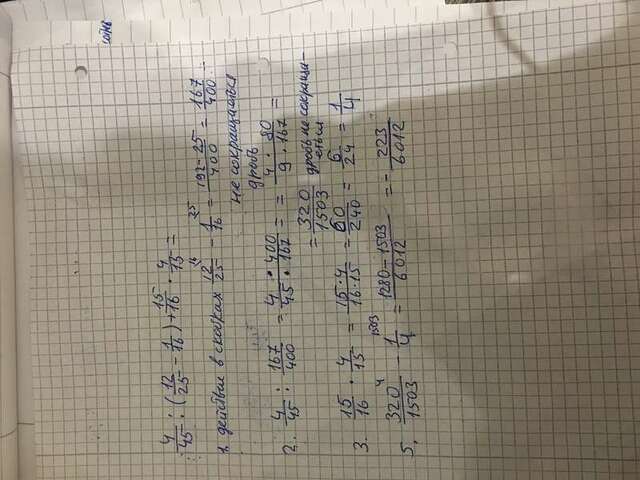 4/45 : (12/25 - 1/16) + 15/16 · 4/15 =
1. действие в скобках 12/25 ¹⁶ - 1/16 ²⁵ = 192-25/400 = 167/400
не сокращаеться
дробь
2. 4/45 : 167/400 = 4 · 400/45 · 167 = = 4 · 80/9 · 167 =
= 320/1503 дробь не сокраща-
еться
3. 15/16 · 4/15 = 15·4/16·15 = 60/240 = 6/24 = 1/4
5. 320/1503 ⁴ - 1/4 ¹⁵⁰³ = 1280-1503/6012 = - 223/6012